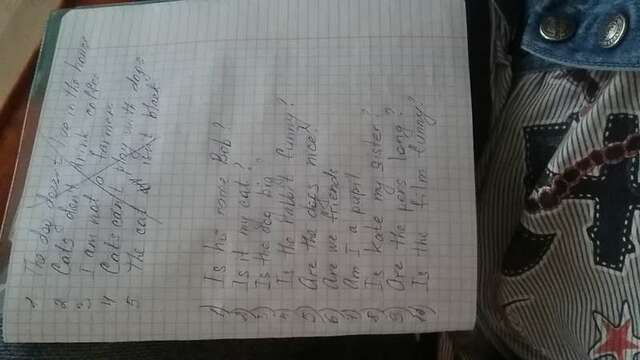 1 The dog doesn't live in the house
2 Cats don't drink coffee
3 I am not a farmer
4 Cats can't play with dogs
5 The cat isn't black
1) Is his name Bob?
2) Is it my cat?
3) Is the dog big?
4) Is the rabbit funny?
5) Are the dogs nice?
6) Are we friends
7) Am I a pupil
8) Is kate my sister?
9) Are the pens long?
10) Is the film funny?